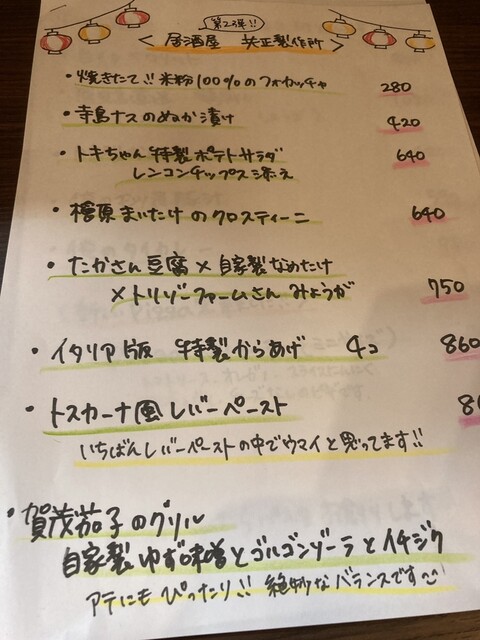 第2弾!!
< 居酒屋 共正製作所 >
・焼きたて!! 米粉100%のフォカッチャ 280
・寺島ナスのぬか漬け 420
・トキちゃん特製ポテトサラダ 640
レンコンチップス添え
・檜原まいたけのクロスティーニ 640
・たかさん豆腐×自家製なめたけ
×トリゾーファームさんみょうが 750
・イタリア版 特製からあげ 4コ 860
・トスカーナ風レバーペースト 8
いちばんレバーペーストの中でウマイと思ってます!!
・賀茂茄子のグリル
自家製ゆず味噌とゴルゴンゾーラとイチジク
アテにもぴったり!! 絶妙なバランスです